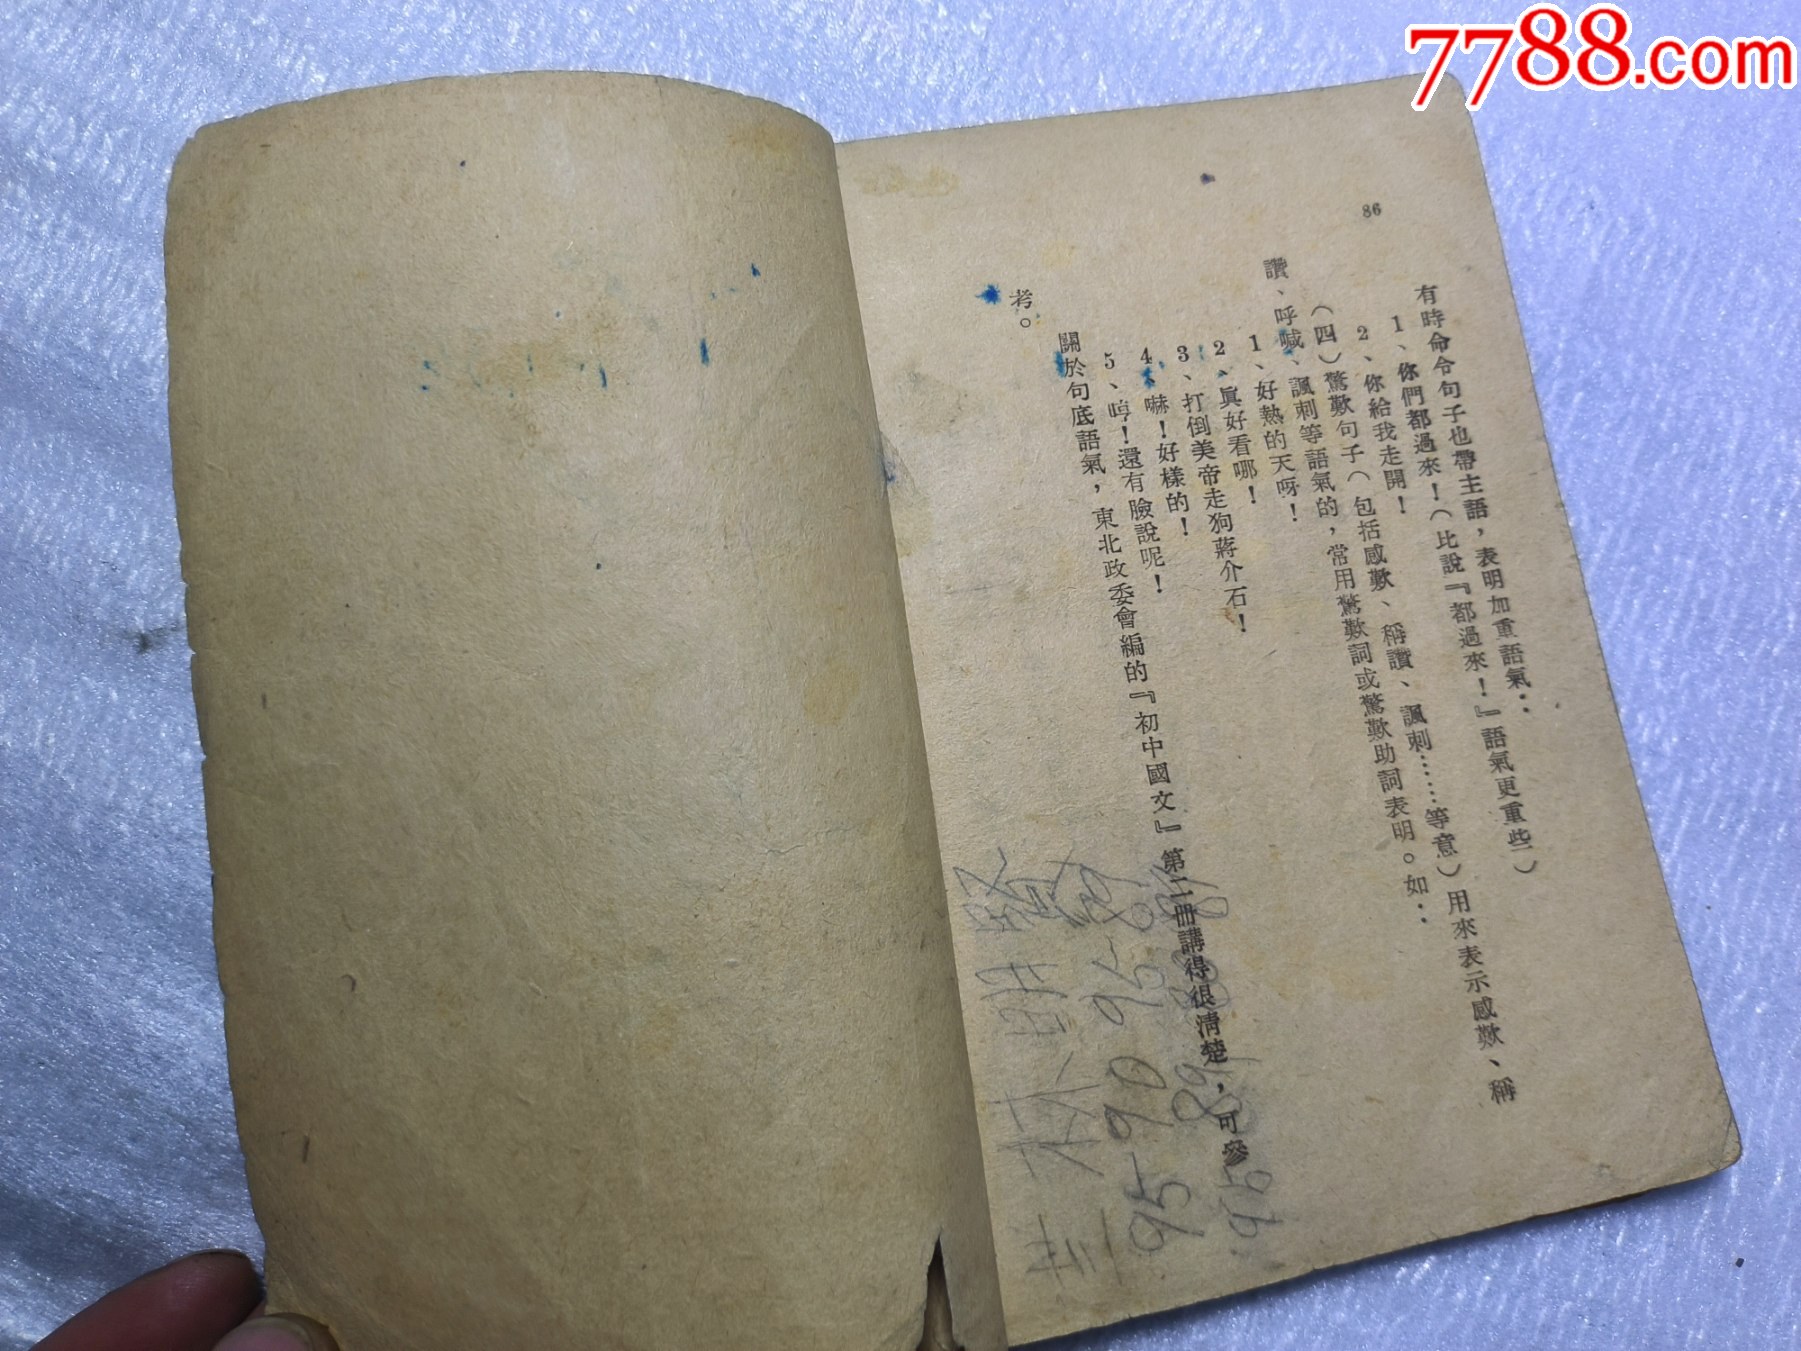 7788.com
86
有時命令句子也帶主語，表明加重語氣：
1、你們都過來！（比說『都過來！』語氣更重些）
2、你給我走開！
（四）驚歎句子（包括感歎、稱讚、諷刺……等意）用來表示感歎、稱
讚、呼喊、諷刺等語氣的，常用驚歎詞或驚歎助詞表明。如：
1、好熱的天呀！
2、眞好看哪！
3、打倒美帝走狗蔣介石！
4、嚇！好樣的！
5、哼！還有臉說呢！
關於句底語氣，東北政委會編的『初中國文』第二冊講得很清楚，可參
考。
95 90 95 89
95 89